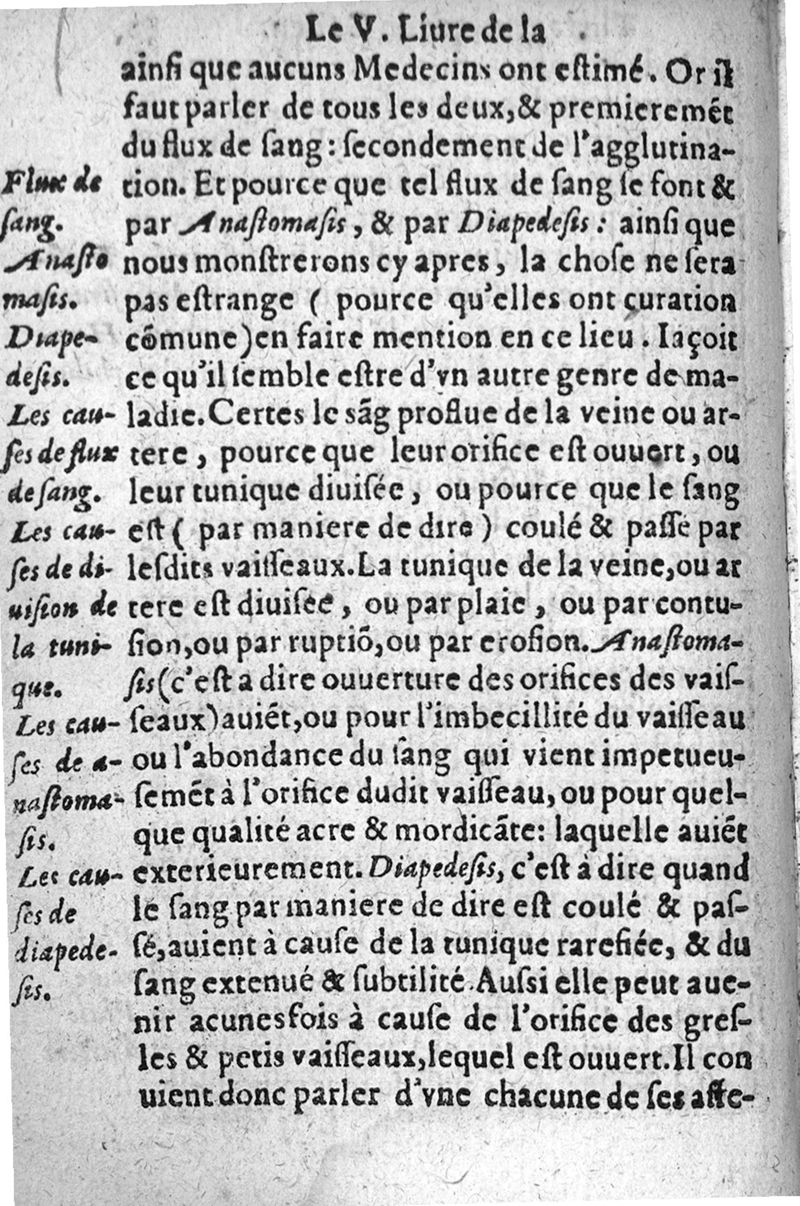 Le V. Liure de la
ainſi que aucuns Medecins ont eſtimé. Or il
faut parler de tous les deux,& premieremẽt
du flux de ſang: ſecondement de l'agglutina-
tion. Et pource que tel flux de ſang ſe font &
par Anaſtomaſis, & par Diapedeſis: ainſi que
nous monſtrerons cy apres, la choſe ne ſera
pas eſtrange ( pource qu'elles ont curation
cõmune)en faire mention en ce lieu. Iaçoit
ce qu'il ſemble eſtre d'vn autre genre de ma-
ladie. Certes le sãg proflue de la veine ou ar-
tere, pource que leur orifice eſt ouuert, ou
leur tunique diuiſée, ou pource que le ſang
eſt ( par maniere de dire ) coulé & paſſé par
leſdits vaiſſeaux. La tunique de la veine,ou ar
tere eſt diuiſée, ou par plaie, ou par contu-
ſion,ou par ruptiõ,ou par eroſion. Anaſtoma-
ſis(c'eſt a dire ouuerture des orifices des vaiſ-
ſeaux)auiẽt,ou pour l'imbecillité du vaiſſeau
ou l'abondance du ſang qui vient impetueu-
ſemẽt à l'orifice dudit vaiſſeau,ou pour quel-
que qualité acre & mordicãte: laquelle auiẽt
exterieurement. Diapedeſis, c'eſt à dire quand
le ſang par maniere de dire eſt coulé & paſ-
ſé,auient à cauſe de la tunique rarefiée, & du
ſang extenué & ſubtilité. Auſsi elle peut aue-
nir acunesfois à cauſe de l'orifice des greſ-
les & petis vaiſſeaux,lequel eſt ouuert. Il con
uient donc parler d'vne chacune de ſes affe-
Flux de
ſang.
Anaſto
maſis.
Diape-
deſis.
Les cau-
ſes de flux
de ſang.
Les cau-
ſes de di-
uiſion de
la tuni-
que.
Les cau-
ſes de a-
naſtoma-
ſis.
Les cau-
ſes de
diapede-
ſis.